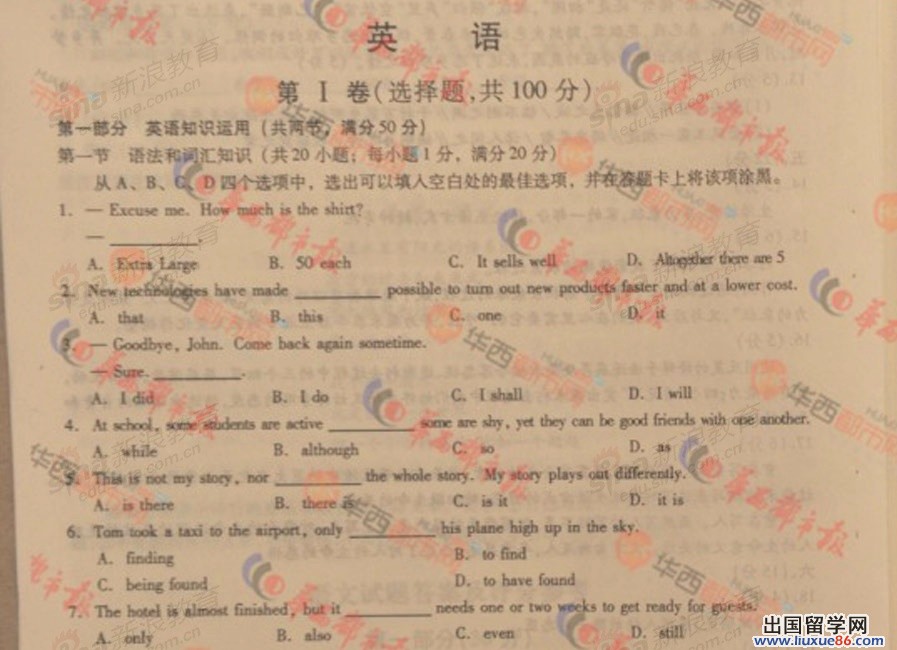 英 语
第 Ⅰ 卷(选择题,共100分)
第一部分 英语知识运用(共两节,满分50分)
第一节 语法和词汇知识(共20小题;每小题1分,满分20分)
从A、B、C、D四个选项中,选出可以填入空白处的最佳选项,并在答题卡上将该项涂黑。
1. — Excuse me. How much is the shirt?
— ________.
A. Extra Large B. 50 each C. It sells well D. Altogether there are 5
2. New technologies have made ________ possible to turn out new products faster and at a lower cost.
A. that B. this C. one D. it
3. — Goodbye, John. Come back again sometime.
— Sure. ________.
A. I did B. I do C. I shall D. I will
4. At school, some students are active ________ some are shy, yet they can be good friends with one another.
A. while B. although C. so D. as
5. This is not my story, nor ________ the whole story. My story plays out differently.
A. is there B. there is C. is it D. it is
6. Tom took a taxi to the airport, only ________ his plane high up in the sky.
A. finding B. to find
C. being found D. to have found
7. The hotel is almost finished, but it ________ needs one or two weeks to get ready for guests.
A. only B. also C. even D. still
出国留学网
www.liuxue86.com
sina新浪教育
edu.sina.com.cn
华西都市报
华西都市网